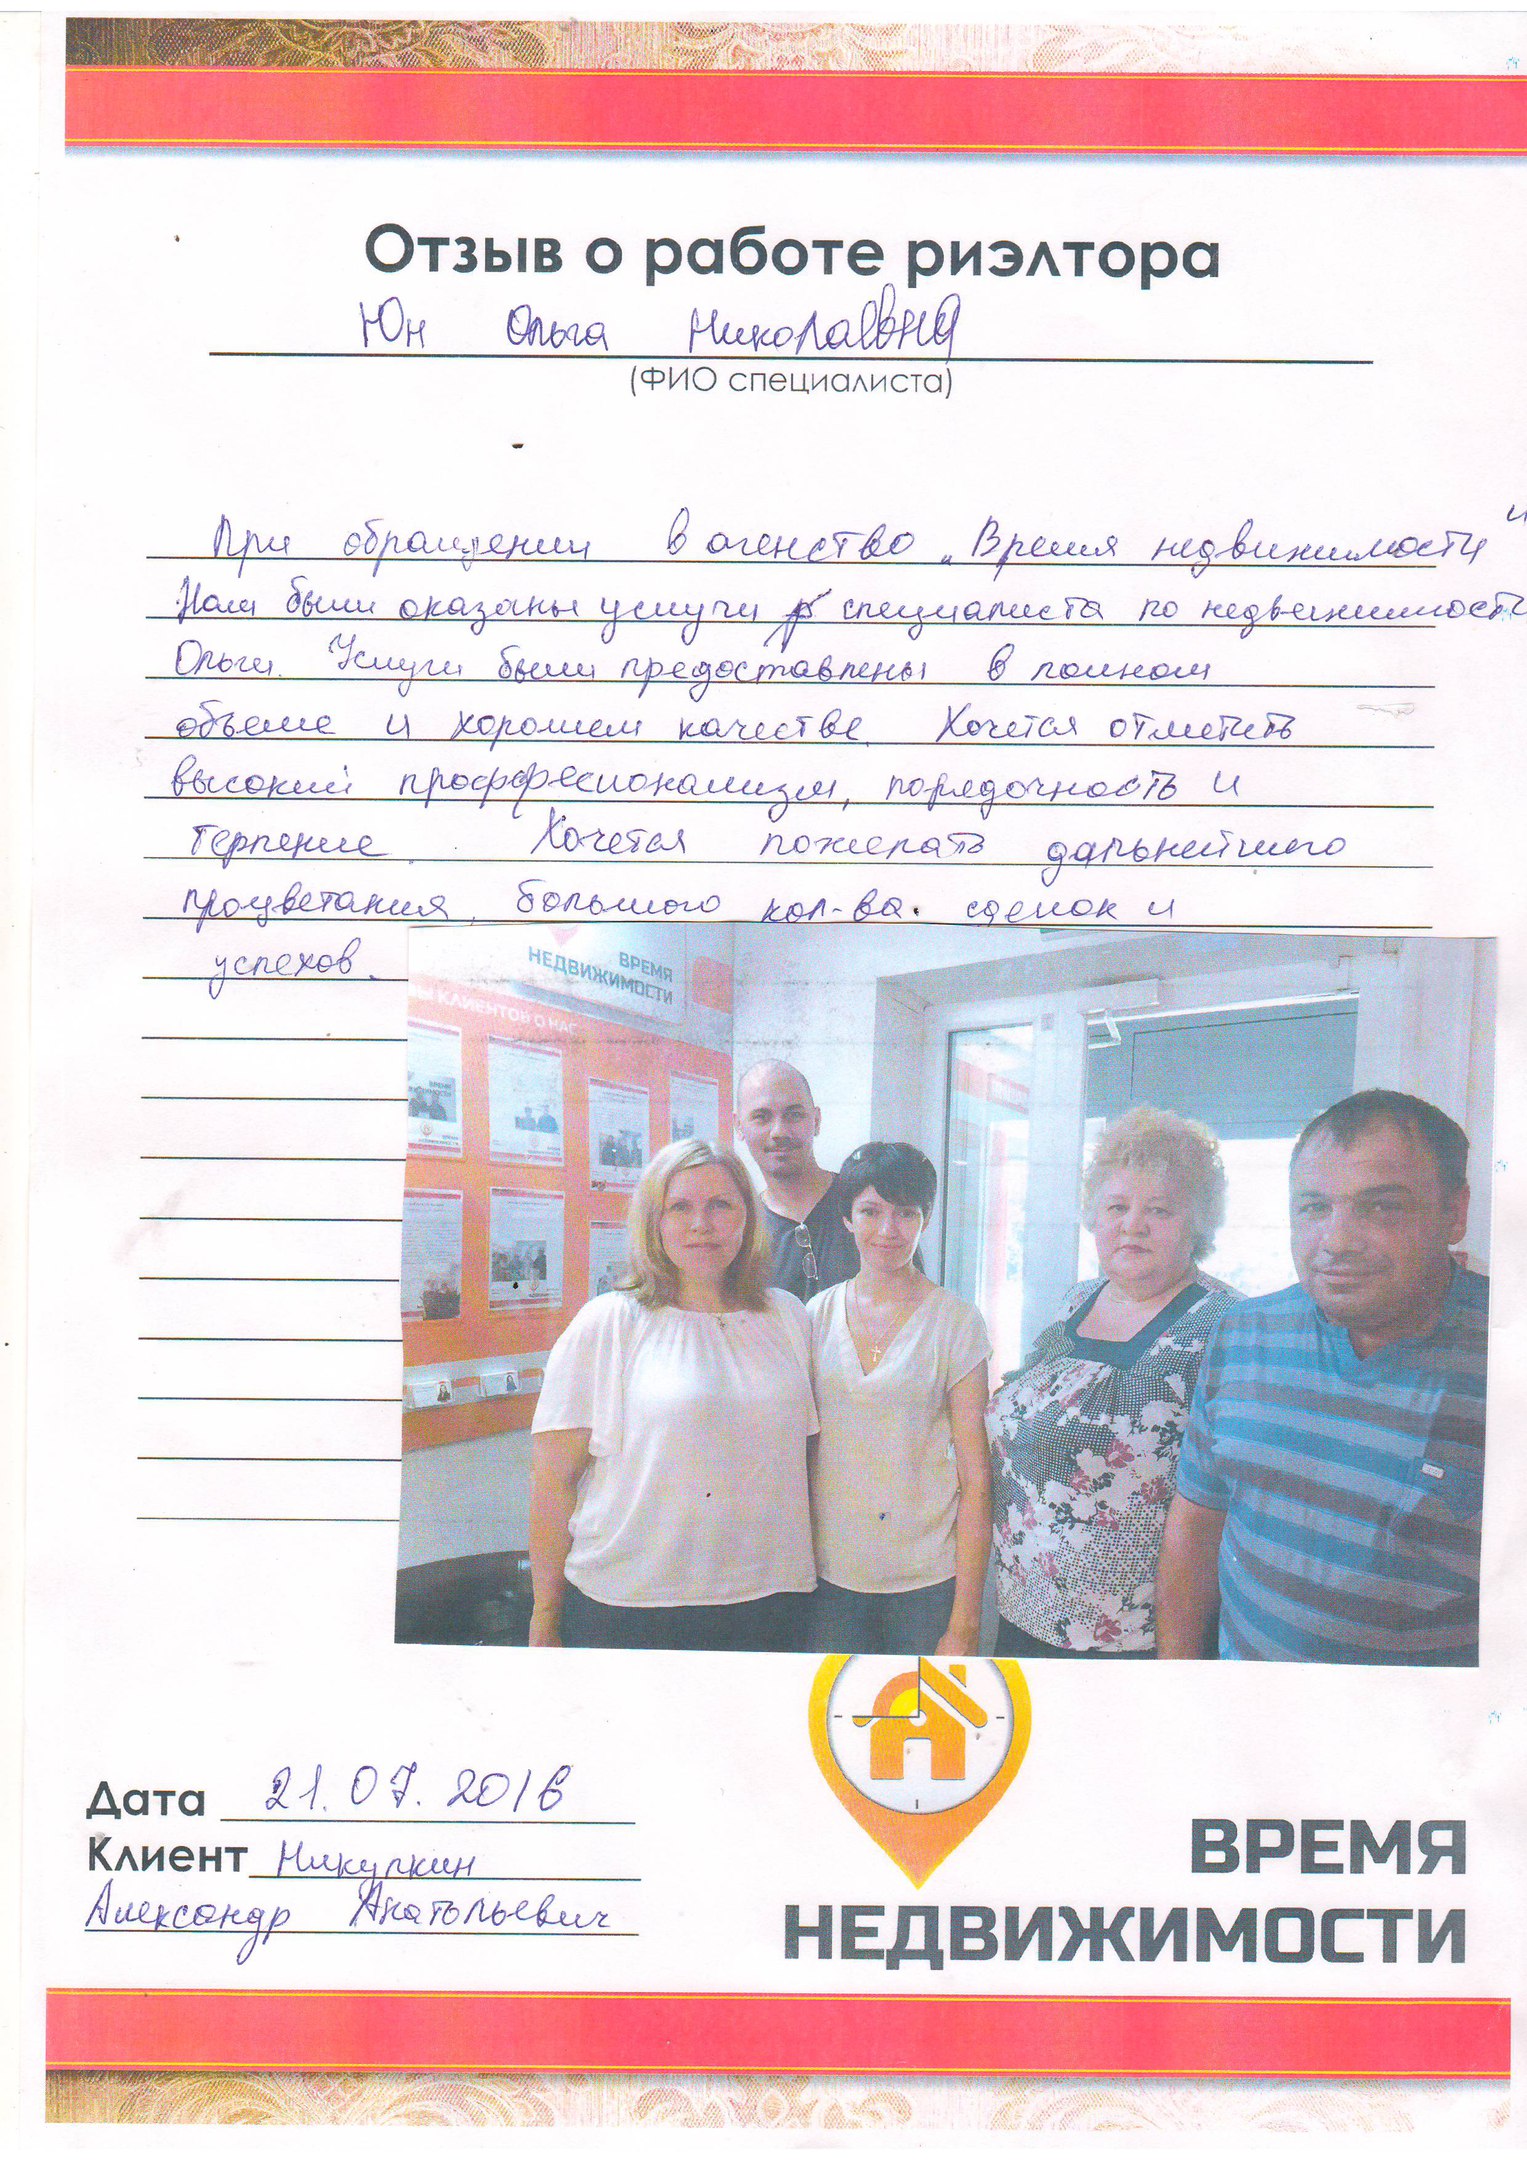 Отзыв о работе риэлтора
Юн Ольга Николаевна
(ФИО специалиста)
При обращении в агенство „Время недвижимости"
Нам были оказаны услуги специалиста по недвижимости
Ольги. Услуги были предоставлены в полном
объеме и хорошем качестве. Хочется отметить
высокий проффесионализм, порядочность и
терпение. Хочется пожелать дальнейшего
процветания, большого кол-ва. сделок и
успехов.
ВРЕМЯ
НЕДВИЖИМОСТИ
КЛИЕНТОВ О НАС
Дата 21.07.2016
Клиент Никулкин
Александр Анатольевич
ВРЕМЯ
НЕДВИЖИМОСТИ